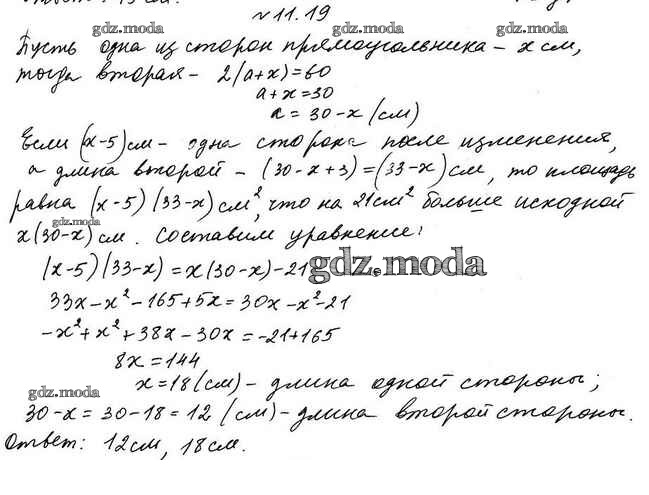 №11.19
gdz.moda
gdz.moda
Пусть одна из сторон прямоугольника – x см,
тогда вторая – 2(a+x)=60
a+x=30
a = 30-x (см)
Если (x-5) см – одна сторона после изменения,
а длина второй – (30-x+3)=(33-x) см, то площадь
равна (x-5)(33-x) см², что на 21 см² больше исходной
gdz.moda
x(30-x) см. Составим уравнение:
(x-5)(33-x)=x(30-x)-21
gdz.moda
33x-x²-165+5x=30x-x²-21
-x²+x²+38x-30x=-21+165
8x=144
x=18(см) – длина одной стороны;
gdz.moda
30-x=30-18=12 (см) – длина второй стороны.
Ответ: 12см, 18см.